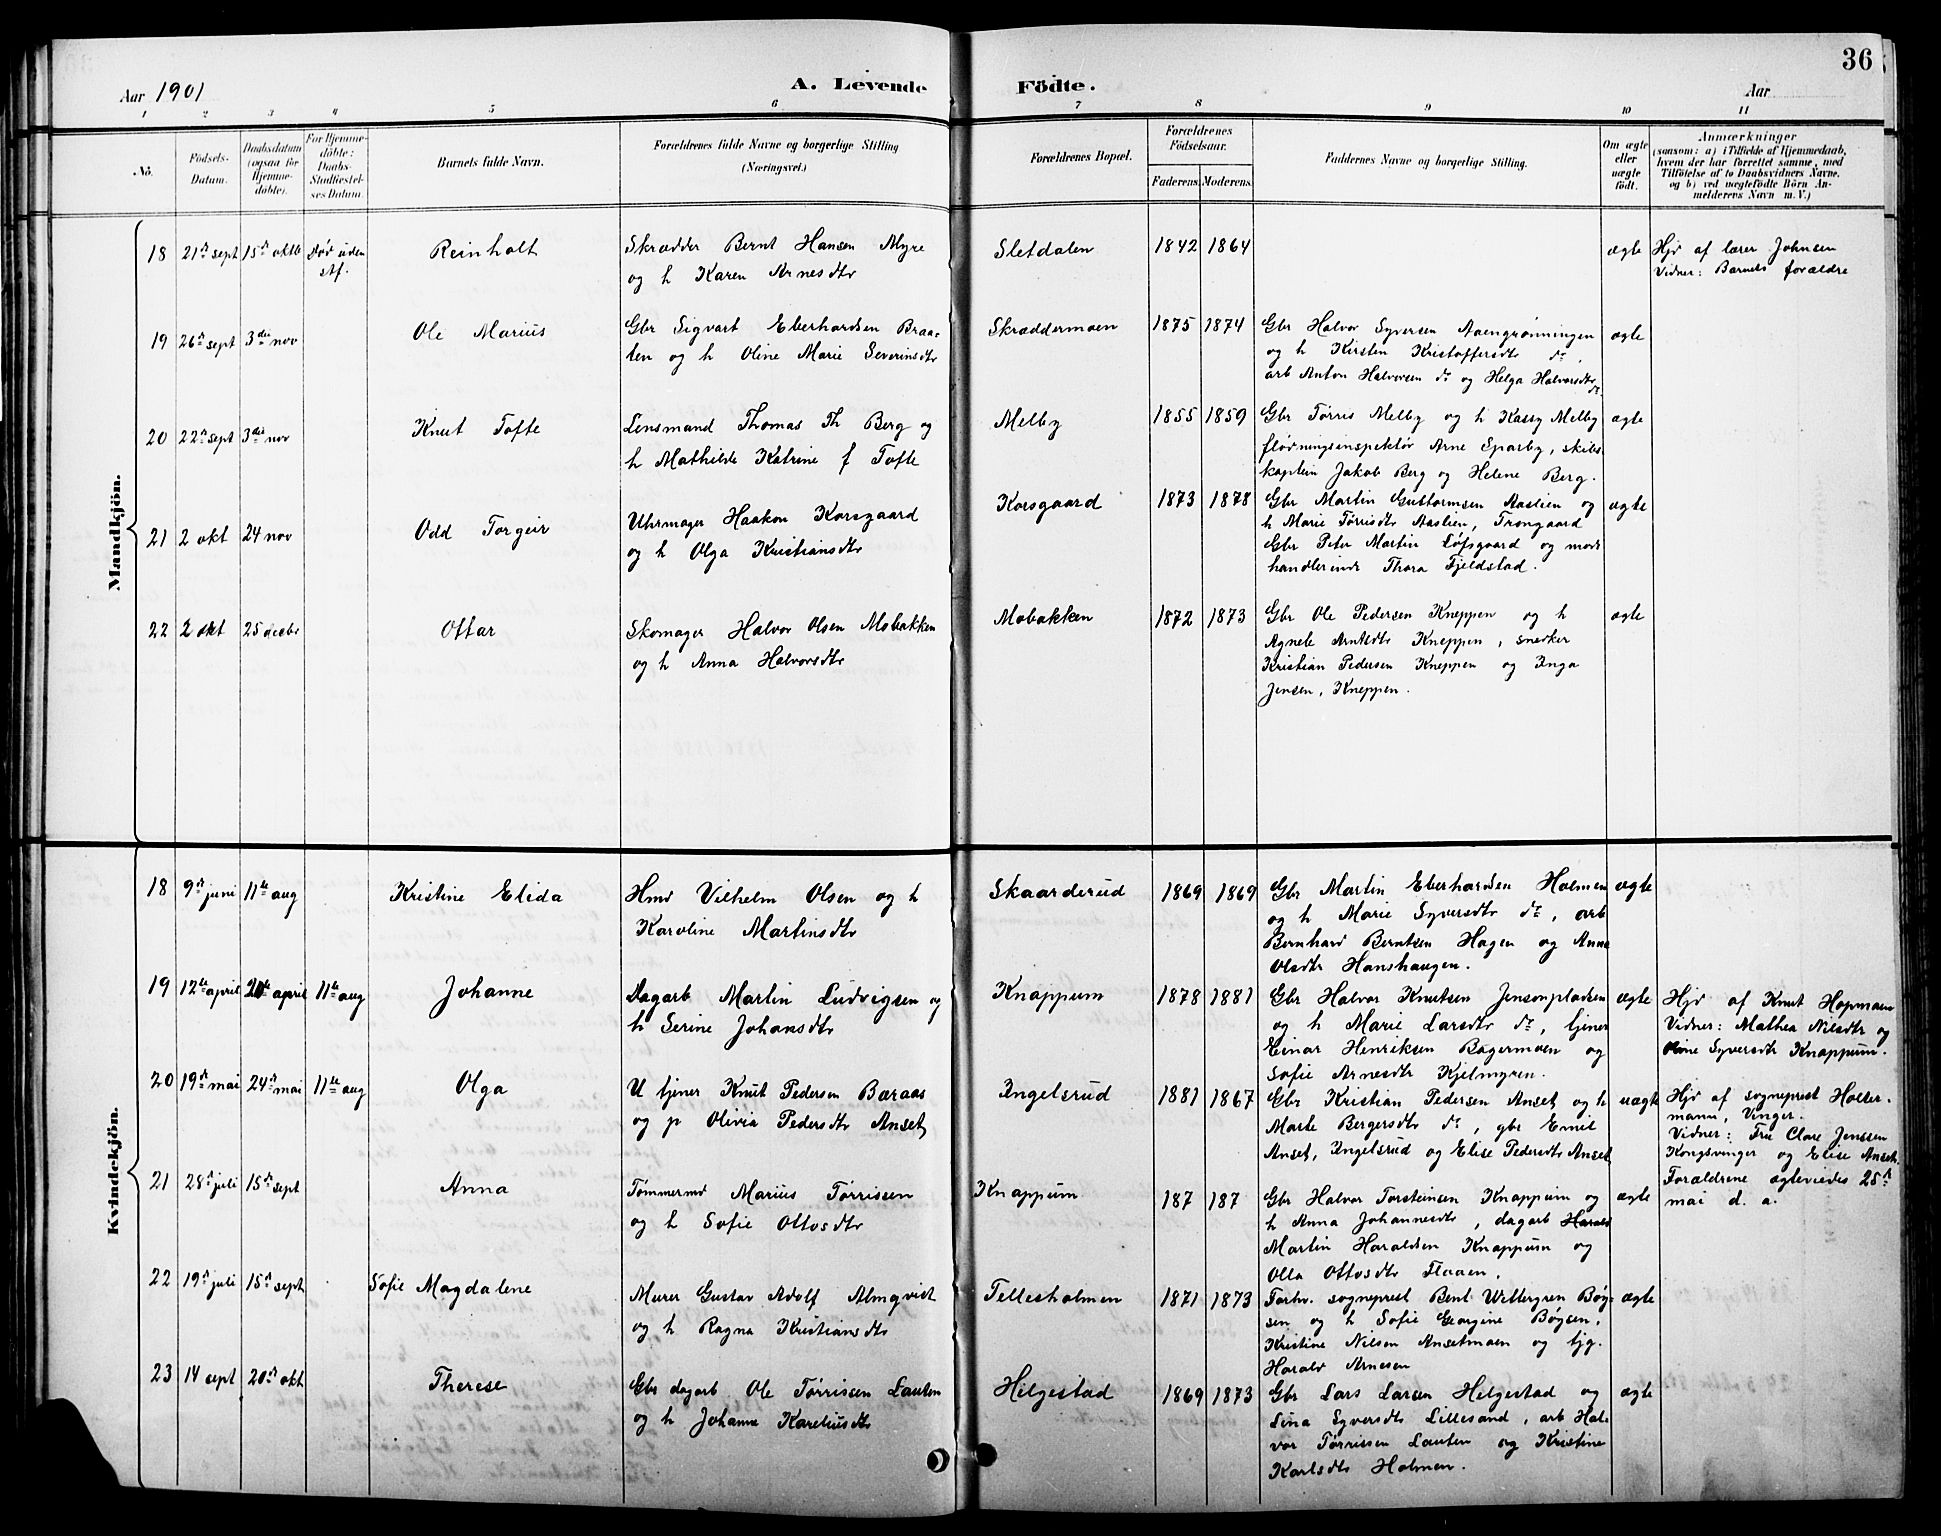 36
Aar 1901
A. Levende
Födte.
Aar
1 2 3 4 5 6 7 8 9 10 11
No.
Födsels-
Datum.
Daabsdatum
(ogsaa for
Hjemme-
döbte).
For Hjemme-
döbte:
Daabs-
Stadfæstel-
ses Datum.
Barnets fulde Navn.
Forældrenes fulde Navne og borgerlige Stilling
(Næringsvei.)
Forældrenes Bopæl.
Forældrenes
Födselsaar.
Faderens
Moderens
Faddernes Navne og borgerlige Stilling.
Om ægte
eller
uægte
födt.
Anmærkninger
(saasom: a) i Tilfælde af Hjemmedaab,
hvem der har forrettet samme, med
Tilföielse af to Daabsvidners Navne,
og b) ved uægtefödte Börn An-
melderens Navn m. V.)
Mandkjön.
18
21de sept
15de oktb
Død uden
stf.
Reinholt
Skrædder Bernt Hansen Myre
og h Karen Arnesdtr
Sletdalen
1842
1864
ægte
Hjd af lærer Johnsen
Vidner: Barnets forældre
19
26de sept
3die nov
Ole Marius
Gbr Sigvart Eberhardsen Braa-
ten og h Oline Marie Severinsdtr
Skræddermoen
1875
1874
Gbr Halvor Syversen Aaengrønningen
og h Kirsten Kristoffersdtr do,
arb Anton Halvorsen do og Helga Halvorsdtr
do
ægte
20
22de sept
3die nov
Knut Tofte
Lensmand Thomas Th Berg og
h Mathilde Katrine f Tofte
Melby
1855
1859
Gbr Tørris Melby og h Kassy Melby
fløtningsinspektør Arne Sparby, skibs-
kaptein Jakob Berg og Helene Berg.
ægte
21
2 okt
24 nov
Odd Torgeir
Uhrmager Haakon Korsgaard
og h Olga Kristiansdtr
Korsgaard
1873
1878
Gbr Martin Guttormsen Aaslien og
h Marie Tørrisdtr Aaslien, Trongaard
Gbr Peter Martin Løfsgaard og mode
handlerinde Thora Fjeldstad.
ægte
22
2 okt
25 decbr
Ottar
Skomager Halvor Olsen Mobakken
og h Anna Halvorsdtr
Mobakken
1872
1873
Gbr Ole Pedersen Kneppen og h
Agnete Arntsdtr Kneppen, snedker
Kristian Pedersen Kneppen og Inga
Jensen, Kneppen.
ægte
Kvindekjön.
18
9de juni
11te aug
Kristine Elida
Hmd Vilhelm Olsen og h
Karoline Martinsdtr
Skaarderud
1869
1869
Gbr Martin Eberhardsen Holmen
og h Marie Syversdtr do, arb
Bernhard Berntsen Hagen og Anne
Olsdtr Hanshaugen.
ægte
19
12te april
20de april
11te aug
Johanne
Dagarb Martin Ludvigsen og
h Serine Johansdtr
Knappum
1878
1881
Gbr Halvor Knutsen Jensonpladsen
og h Marie Larsdtr do, tjener
Einar Henriksen Bagermoen og
Sofie Arnesdtr Kjelmyren.
ægte
Hjd af Knut Hopmoen
Vidner: Mathea Nilsdtr og
Oline Syversdtr Knappum.
20
19de mai
24de mai
11te aug
Olga
U tjener Knut Pedersen Baraas
og p Olivia Pedersdtr Anset
Ingelsrud
1881
1867
Gbr Kristian Pedersen Anset og h
Marte Bergersdtr do, gbr Emil
Anset, Ingelsrud og Elise Pedersdtr Anset
uægte
Hjd af sogneprest Holter-
mann, Vinger.
Vidner: Fru Clare Jenssen
Kongsvinger og Elise Anset.
Forældrene ægteviedes 25de
mai d. a.
21
28de juli
15de sept
Anna
Tømmermd Marius Tørrissen
og h Sofie Ottosdtr
Knappum
187
187
Gbr Halvor Torsteinsen Knappum og
h Anna Johannesdtr, dagarb Harald
Martin Haraldsen Knappum og
Olla Ottosdtr Flaaen.
ægte
22
19de juli
15de sept
Sofie Magdalene
Murer Gustav Adolf Almqvist
og h Ragna Kristiansdtr
Tellesholmen
1871
1873
Forhv. sogneprest Bent Wettergren Bøy-
sen og h Sofie Georgine Bøysen,
Kristine Nilsen Ansetmoen og tjg.
Harald Arnesen
ægte
23
14 sept
20de okt
Therese
Gbr dagarb Ole Tørrissen Lauten
og h Johanne Kareliusdtr
Helgestad
1869
1873
Gbr Lars Larsen Helgestad og
Lina Syversdtr Lillesand, arb Hal-
vor Tørrissen Lauten og Kristine
Karlsdtr Holmen.
ægte